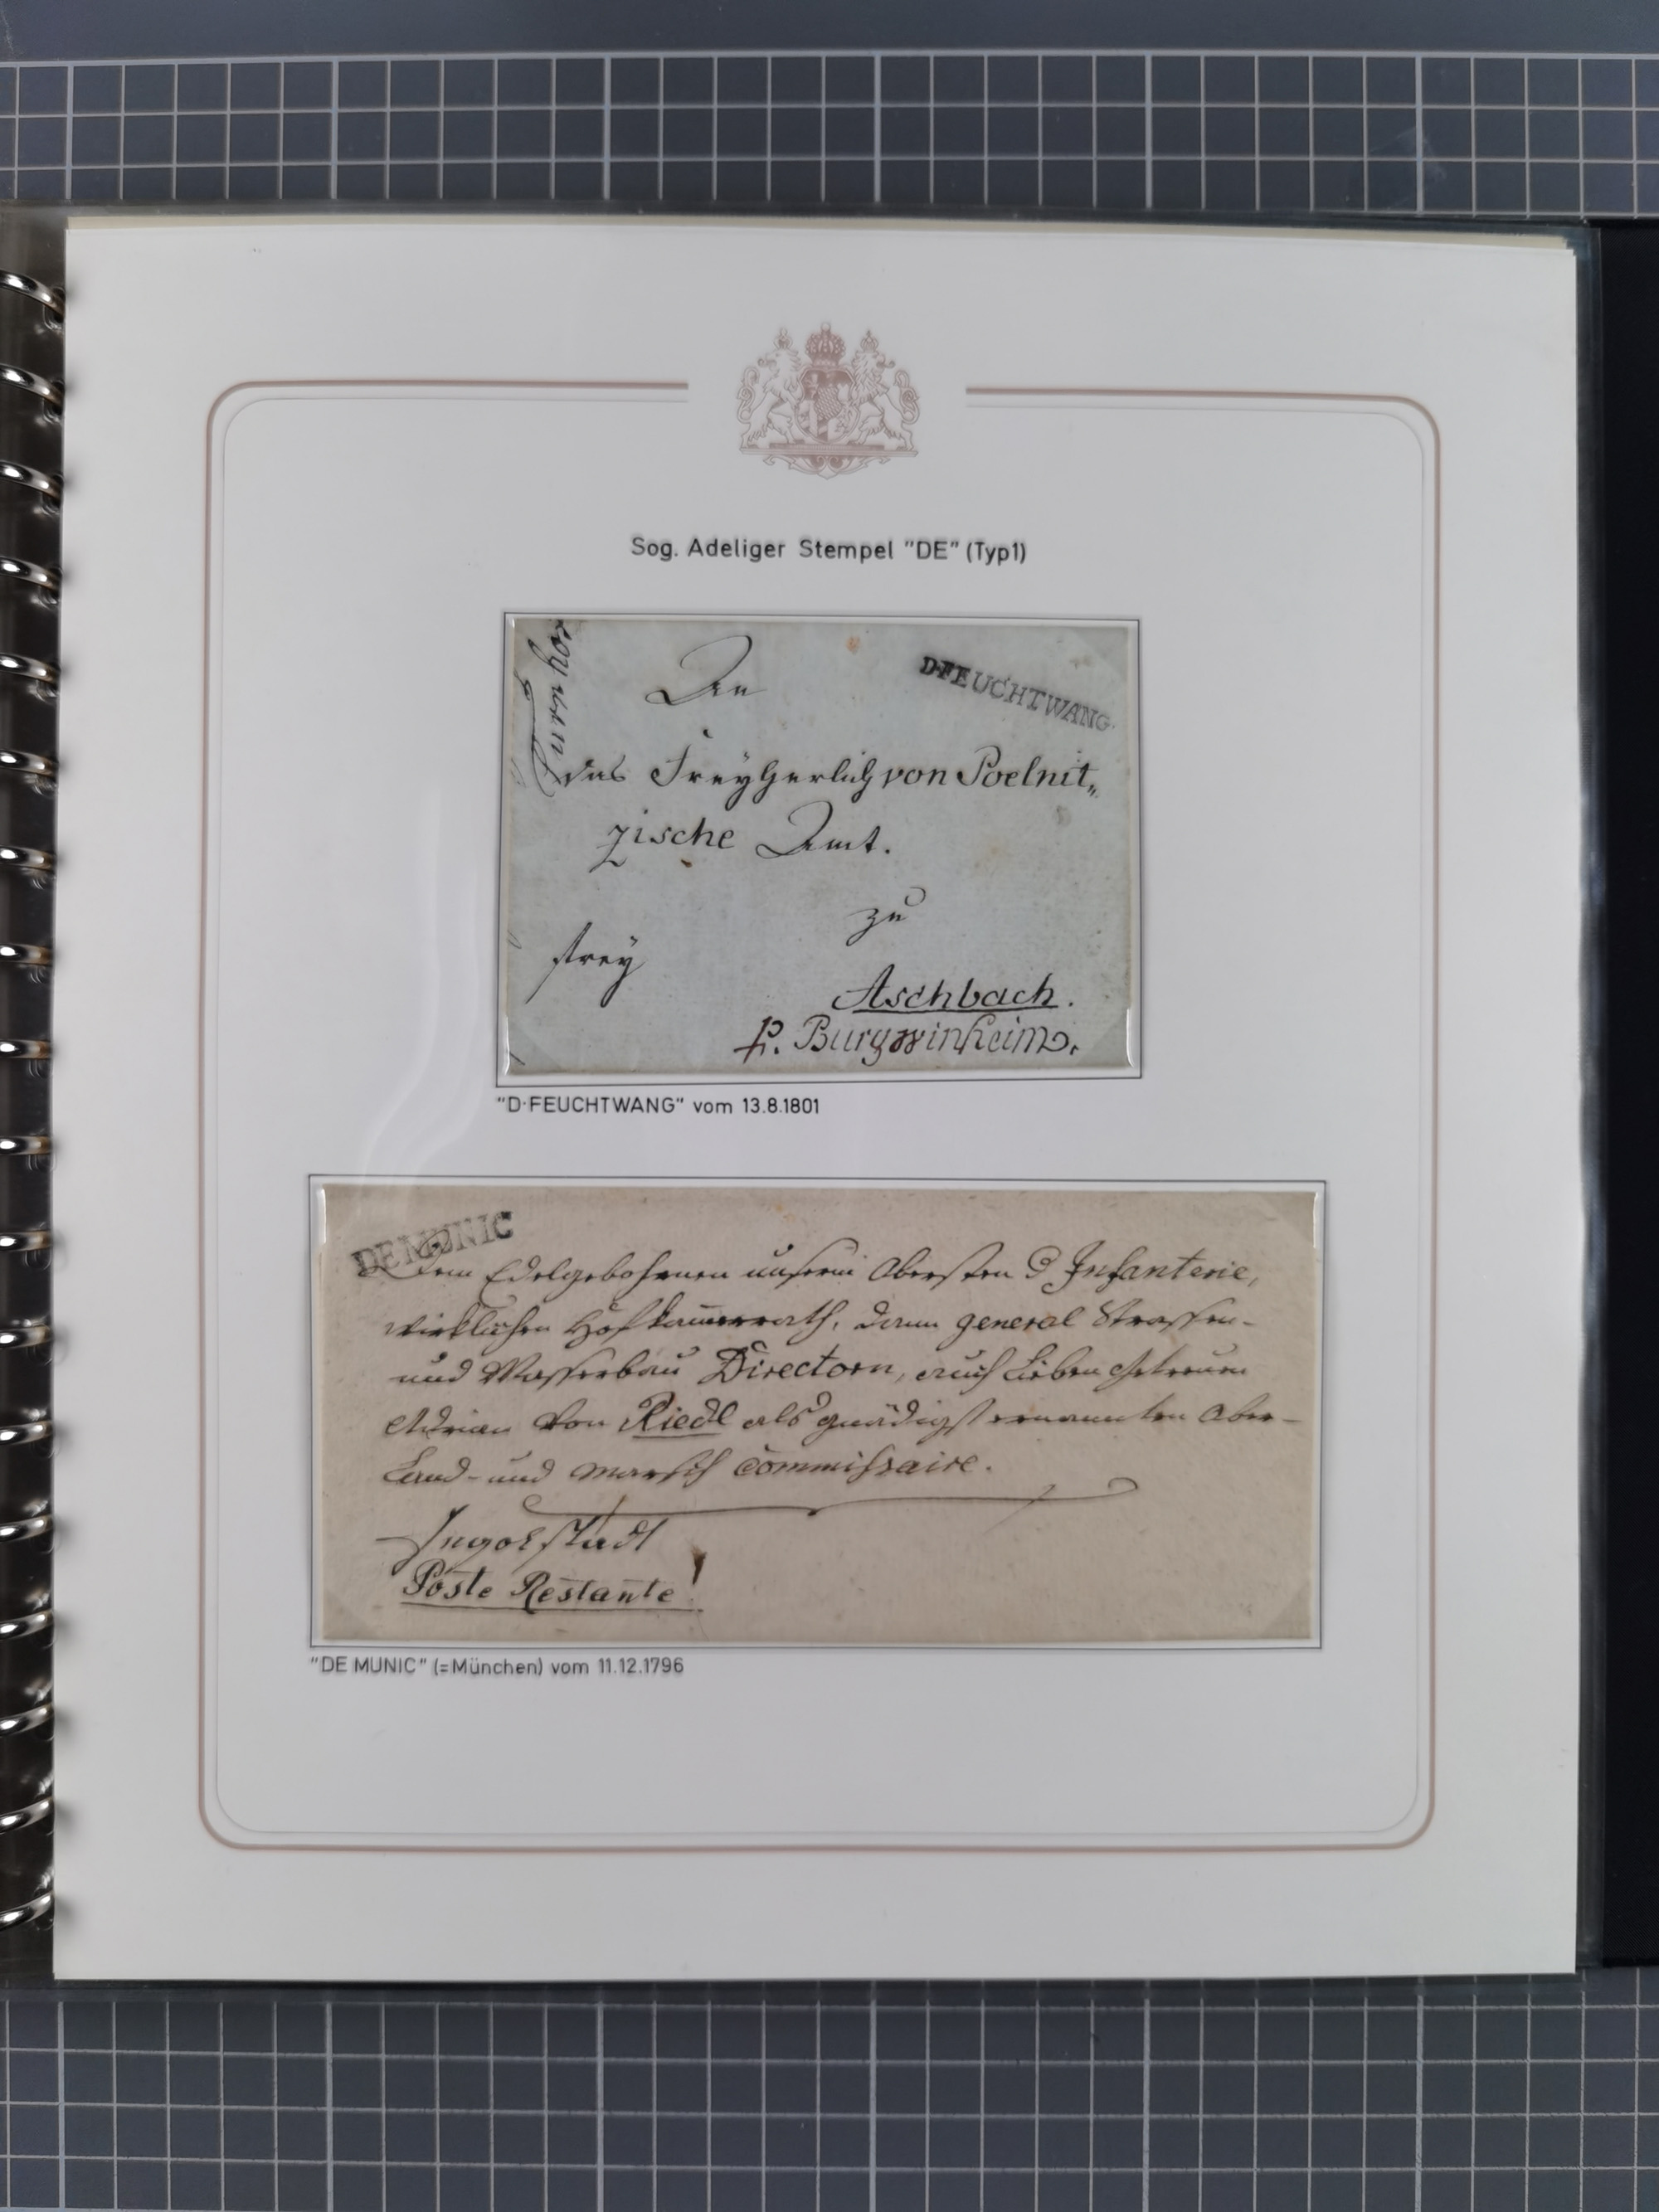 Sog. Adeliger Stempel "DE" (Typ1)
D·FEUCHTWANG·
An
das Freyherlich von Poelnit„
zische Amt.
zu
frey
Aschbach.
p. Burgwinheim.
"D·FEUCHTWANG" vom 13.8.1801
DE MUNIC
Dem Edelgebohrnen unserm Obersten d Infanterie,
wirklichen Hofkammerrath, dann general Strassen-
und Wasserbau Directorn, auch Lieben Getreuen
Adrian von Riedl als gnädigst ernannten Ober-
Land- und Marsch Commissaire.
Ingolstadt
Poste Restante!
"DE MUNIC" (=München) vom 11.12.1796